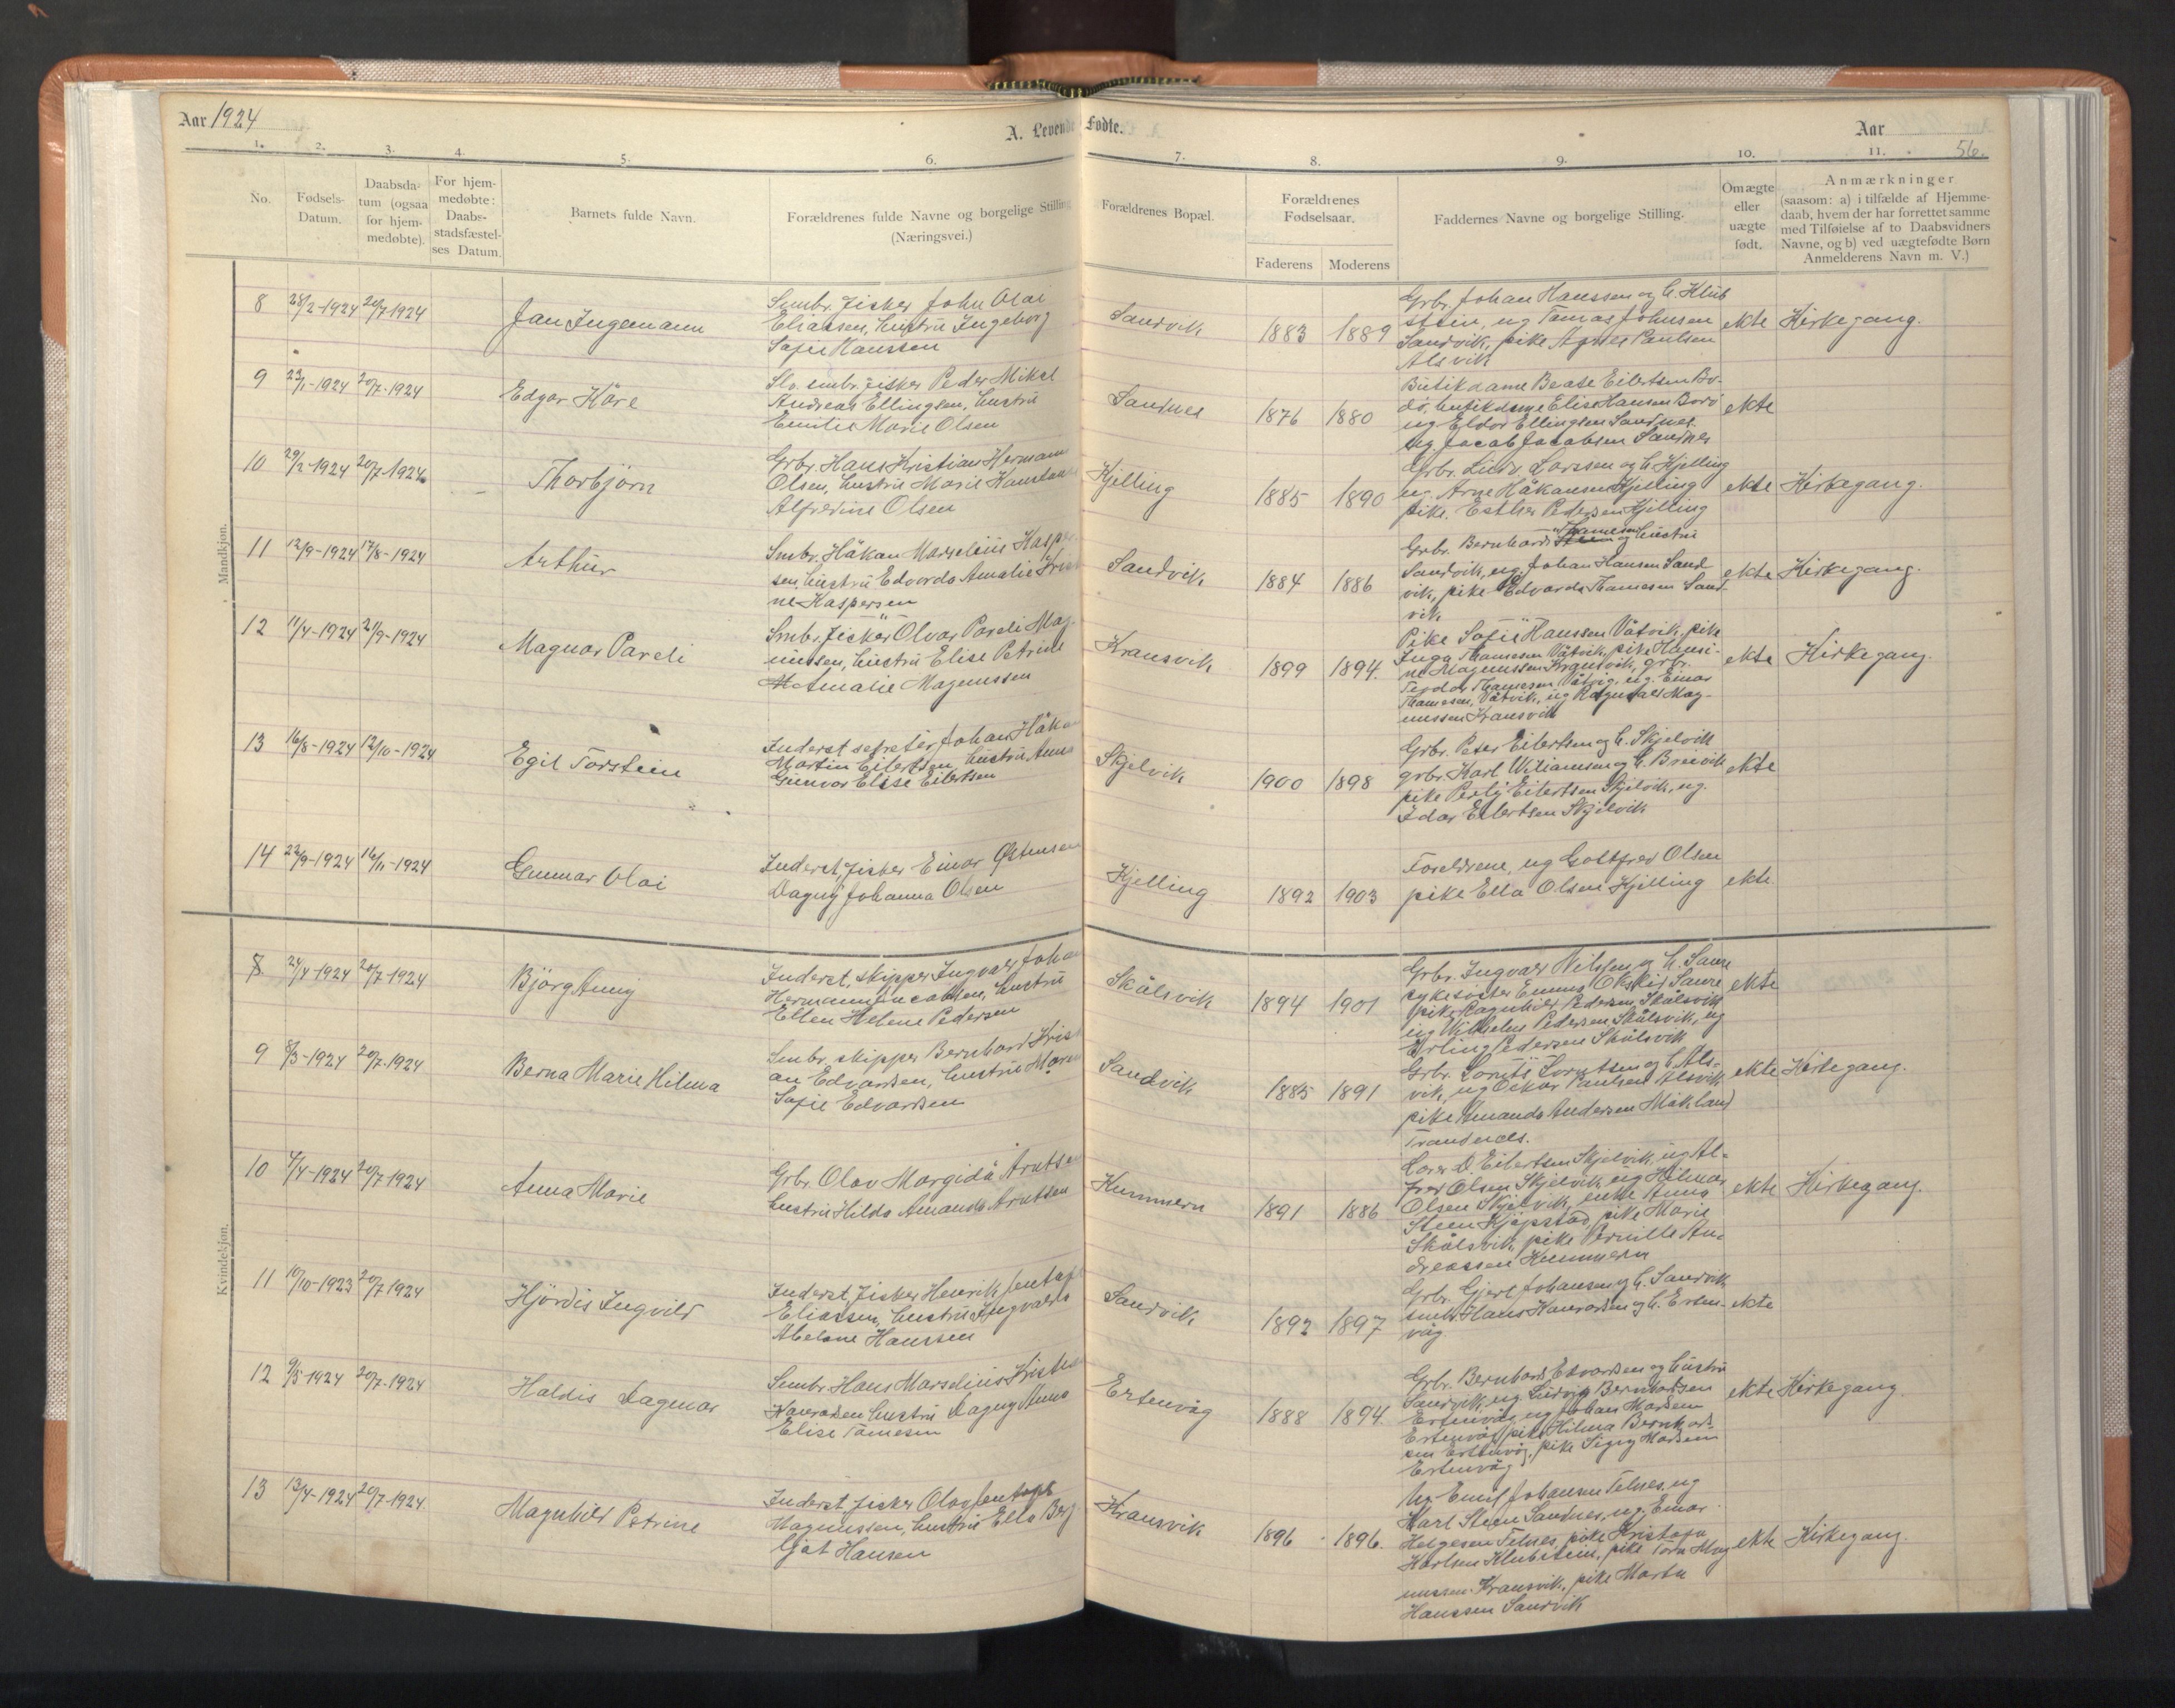 Aar 1924
A. Levende Fødte.
Aar
56.
1.
2.
3.
4.
5.
6.
7.
8.
9.
10.
11.
No.
Fødsels-
Datum.
Daabsda-
tum (ogsaa
for hjem-
medøbte).
For hjem-
medøbte:
Daabs-
stadsfæstel-
ses Datum.
Barnets fulde Navn.
Forældrenes fulde Navne og borgelige Stilling
(Næringsvei.)
Forældrenes Bopæl.
Forældrenes
Fødselsaar.
Faderens
Moderens
Faddernes Navne og borgelige Stilling.
Omægte
eller
uægte
født.
Anmærkninger
(saasom: a) i tilfælde af Hjemme-
daab, hvem der har forrettet samme
med Tilføielse af to Daabsvidners
Navne, og b) ved uægtefødte Børn
Anmelderens Navn m. V.)
Mandkjøn.
8 28/2-1924 20/7-1924
Jan Ingemann
Smbr. fisker John Olai
Eliassen, hustru Ingeborg
Sofie Hanssen
Sandvik
1883 1889
Grbr. Johan Hanssen og h. Klub
stein, ug Tomas Johnsen
Sandvik, pike Agnes Paulsen
Alsvik
ekte
Kirkegang.
9 23/1-1924 20/7-1924
Edgar Kåre
Slo. smbr. fisker Peder Mikal
Andreas Ellingsen, hustru
Emilie Marie Olsen
Sandnes
1876 1880
Butikdame Beate Eilertsen Bo-
dø, butikdame Elise Hansen Bodø
ug Eldor Ellingsen Sandnes.
Ug Jacob Jacobsen Sandnes
ekte
10 29/2-1924 20/7-1924
Thorbjørn
Grbr. Hans Kristian Hermann
Olsen, hustru Marie
Alfredine Olsen
Kjelling
1885 1890
Grbr. Larssen og h. Kjelling
ug. Arne Håkansen Kjelling
pike. Esther Pedersen Kjelling
ekte
Kirkegang.
11 12/9-1924 17/8-1924
Arthur
Smbr. Håkan Marselius Kasper
sen, hustru Edvarda Amalie Kris
ne Kaspersen
Sandvik
1884 1886
Grbr. Bernhard Thomesen og hustru
Sandvik, ug. Johan Hansen Sand
vik, pike Edvarda Thomesen Sand-
vik
ekte
Kirkegang.
12 11/4-1924 21/9-1924
Magnar Pareli
Smbr. fisker Olvar Pareli Mag-
nussen, hustru Elise Petrine
Amalie Magnussen
Kransvik
1899 1894.
Pike Sofie Hanssen Våtvik, pike
Inga Thomesen Våtvik, pike Hansi-
ne Magnussen Kransvik, grbr.
Teodor Thomesen, Våtvig, ug. Einar
Thomesen, Våtvik, ug Ragnvald Mag-
nussen Kransvik
ekte
Kirkegang.
13 16/8-1924 12/10-1924
Egil Torstein
Inderst sekretær, Johan Håkon
Martin Eilertsen, hustru Anna
Gunvor Elise Eilertsen
Skjelvik
1900 1898
Grbr. Peter Eilertsen og h. Skjelvik
grbr. Karl Wiliamsen og h. Breivik
pike Perly Eilertsen Skjelvik, ug.
Idar Eilertsen Skjelvik
ekte
14 22/9-1924 16/11-1924
Gunnar Olai
Inderst, fisker Einar Østensen
Dagny Johanna Olsen
Kjelling
1892 1903
Foreldrene, ug Gottfred Olsen
pike Ella Olsen Kjelling
ekte.
Kvindekjøn.
8. 24/4-1924 20/7-1924
Bjørg Anny
Inderst, skipper Ingvar Johan
Hermann Jacobsen, hustru
Ellen Helene Pedersen
Skålsvik
1894 1901
Grbr. Ingvar Nilssen og h. Saure
sykesøster Emma Okskid Saure
pike Ragnhild Pedersen, Skålsvik
ug Wilhelm Pedersen Skålsvik, ug
Erling Pedersen Skålsvik
ekte
9 8/3-1924 20/7-1924
Berna Marie Hilma
Smbr. skipper Bernhard Kristi
an Edvardsen, hustru Maren
Sofie Edvardsen
Sandvik
1885 1891
Grbr. Lorntsen og h. Als-
vik, ug Oskar Paulsen Alsvik
pike Amanda Andersen Mækland
Tranderals.
ekte
Kirkegang.
10 4/4-1924 20/7-1924
Anna Marie
Grbr. Olav Margidå Arntsen
hustru Hilda Amanda Arntsen
Kummern
1891 1886
Lærer D. Eilertsen Skjelvik, ug Al-
fred Olsen Skjelvik, ug Hilmar
Olsen Skjelvik, enke Anna
Steen Kjøpstad, pike Marie
Skålsvik, pike Pernille An-
dreassen Kummern
ekte
Kirkegang.
11 10/10-1923 20/7-1924
Hjördis Ingvild
Inderst, fisker Henrik Jentoft
Eliassen, hustru Ingvalda
Abelone Hanssen
Sandvik
1892 1897
Grbr. Gjert Johansen og h. Sandvik
smbr. Hans Konradsen og h. Erten-
våg
ekte
12 9/5-1924 20/7-1924
Haldis Dagmar
Smbr. Hans Marselius Kristian
Konradsen hustru Dagny Anna
Elise Tomesen
Ertenvåg
1888 1894.
Grbr. Bernhard Edvardsen og hustru
Sandvik, ug Ludvig Bernhardsen
Ertenvåg, ug Johan Madsen
Ertenvåg, pike Hilma Bernhard-
sen Ertenvåg, pike Signy Madsen
Ertenvåg
ekte
Kirkegang.
13 13/4-1924 20/7-1924
Magnhild Petrine
Inderst, fisker Olav Jentoft
Magnussen, hustru Ella Berg
ljot Hansen
Kransvik
1896 1896.
Ug Emil Johansen Telnes, ug
Karl Steen Sandnes, ug Einar
Helgesen Telnes, pike Kristofa
Karlsen Klubstein, pike Tora Mag
nussen Kransvik, pike Marta
Hanssen Sandvik
ekte
Kirkegang.